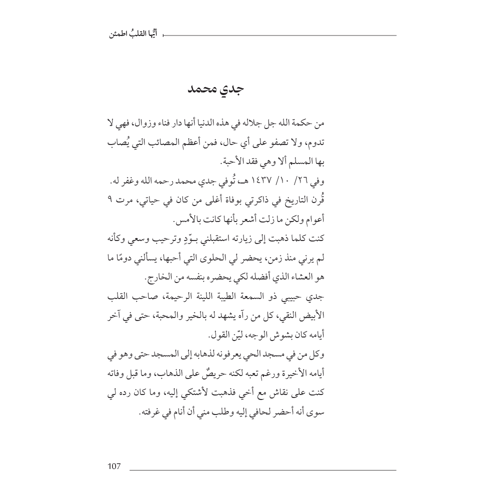 أيُّها القلبُ اطمئن
جدي محمد
من حكمة الله جل جلاله في هذه الدنيا أنها دار فناء وزوال، فهي لا
تدوم، ولا تصفو على أي حال، فمن أعظم المصائب التي يُصاب
بها المسلم ألا وهي فقد الأحبة.
وفي ٢٦/ ١٠/ ١٤٣٧ هـ، تُوفي جدي محمد رحمه الله وغفر له.
قُرن التاريخ في ذاكرتي بوفاة أغلى من كان في حياتي، مرت ٩
أعوام ولكن ما زلت أشعر بأنها كانت بالأمس.
كنت كلما ذهبت إلى زيارته استقبلني بودّ وترحيب وسعي وكأنه
لم يرني منذ زمن، يحضر لي الحلوى التي أحبها، يسألني دومًا ما
هو العشاء الذي أفضله لكي يحضره بنفسه من الخارج.
جدي حبيبي ذو السمعة الطيبة اللينة الرحيمة، صاحب القلب
الأبيض النقي، كل من رآه يشهد له بالخير والمحبة، حتى في آخر
أيامه كان بشوش الوجه، ليّن القول.
وكل من في مسجد الحي يعرفونه لذهابه إلى المسجد حتى وهو في
أيامه الأخيرة ورغم تعبه لكنه حريصٌ على الذهاب، وما قبل وفاته
كنت على نقاش مع أخي فذهبت لأشتكي إليه، وما كان رده لي
سوى أنه أحضر لحافي إليه وطلب مني أن أنام في غرفته.
107